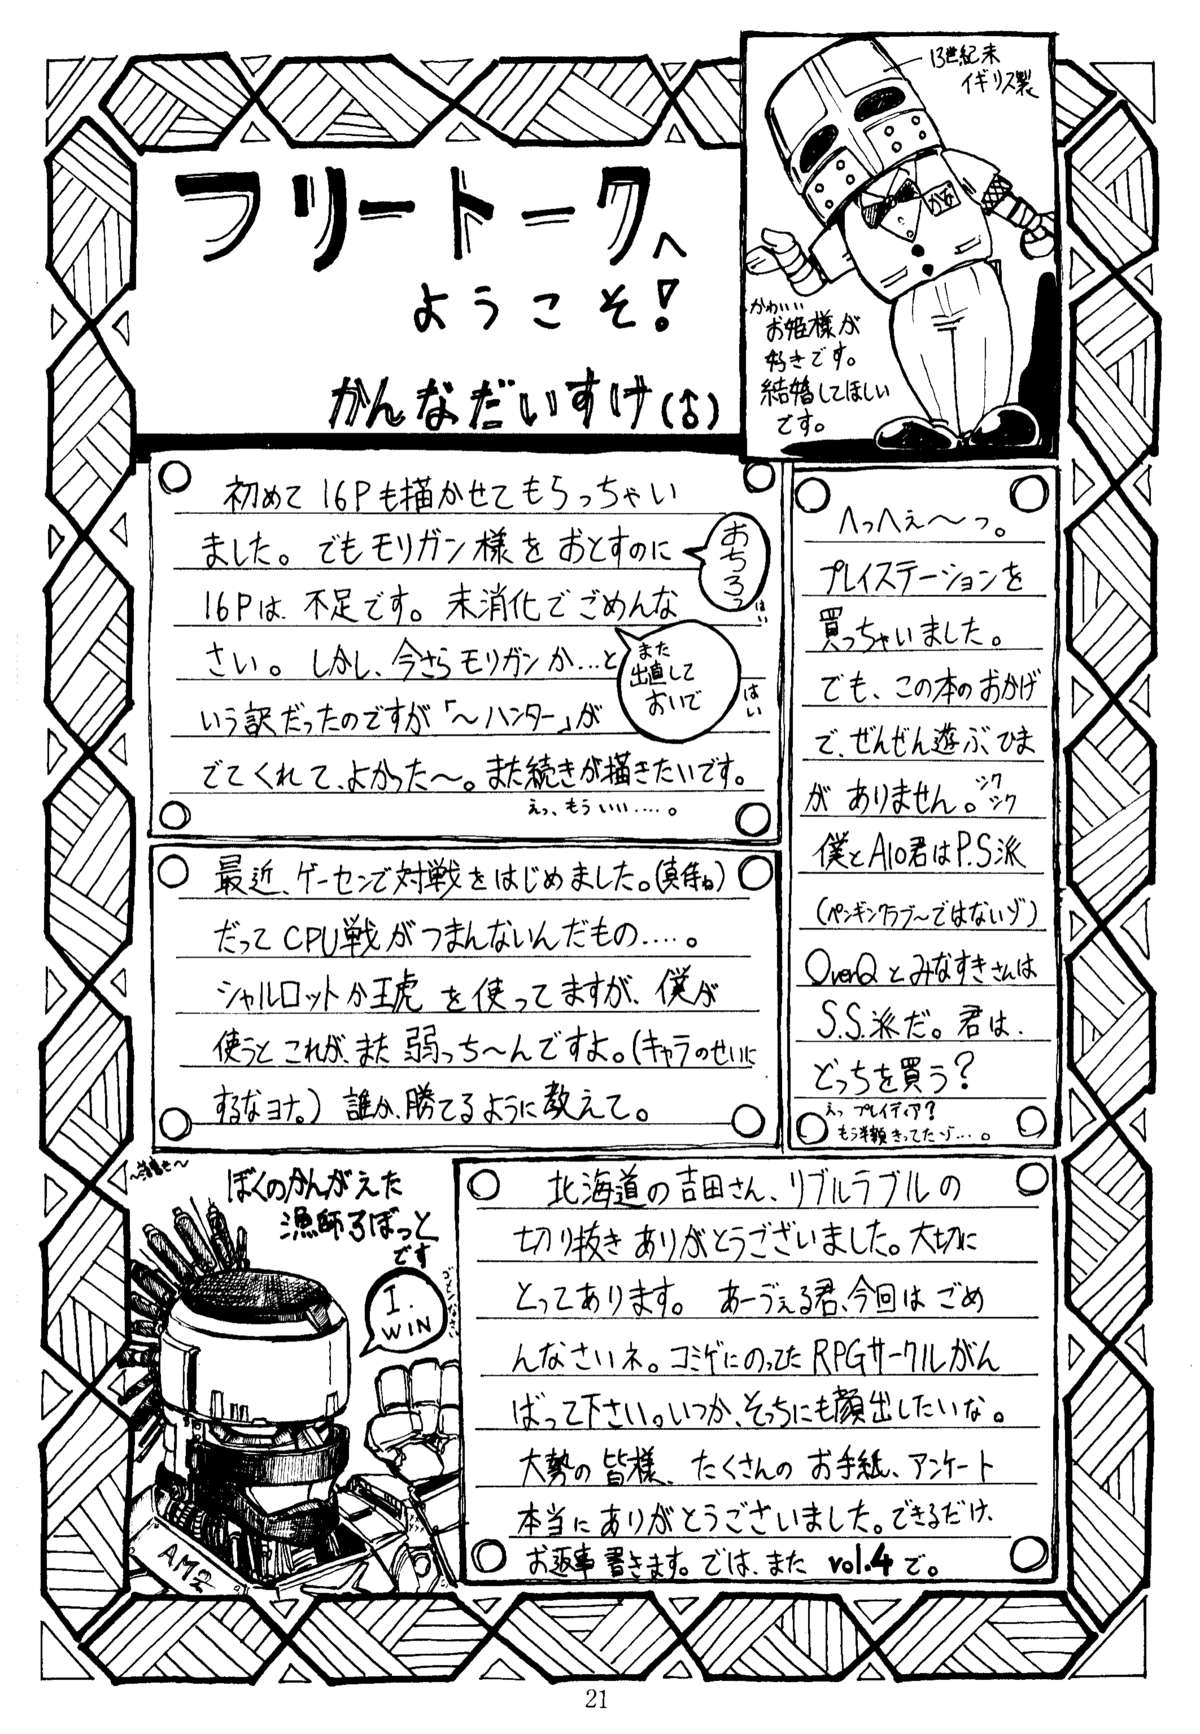 フリートークへ
ようこそ!
かんなだいすけ(♂)
13世紀末
イギリス製
かな
かわいい
お姫様が
好きです。
結婚してほしい
です。
初めて16Pも描かせてもらっちゃい
ました。でもモリガン様をおとすのに
16Pは、不足です。未消化でごめんな
さい。しかし、今さらモリガンか…と
いう訳だったのですが「〜ハンター」が
でてくれて、よかった〜。また続きが描きたいです。
えっ、もういい……。
おちろっ
はい
また
出直して
おいで
はい
へっへぇ〜っ。
プレイステーションを
買っちゃいました。
でも、この本のおかげ
で、ぜんぜん遊ぶひま
がありません。シクシク
僕とA10君はP.S派
(ペンギンクラブ〜ではないゾ)
OverQとみなすきさんは
S.S.派だ。君は、
どっちを買う?
えっ プレイディア?
もう半額きってたゾ…。
最近、ゲーセンで対戦をはじめました。(真侍ね)
だってCPU戦がつまんないんだもの……。
シャルロットか王虎を使ってますが、僕が
使うとこれが、また弱っち〜んですよ。(キャラのせいに
するなヨナ。)誰か、勝てるように教えて。
ぼくのかんがえた
漁師ろぼっと
です
I.
WIN
AM2
北海道の吉田さん、リブルラブルの
切り抜きありがとうございました。大切に
とってあります。あーづぇる君、今回はごめ
んなさいネ。コミゲにのってたRPGサークルがん
ばって下さい。いつか、そっちにも顔出したいな。
大勢の皆様、たくさんのお手紙、アンケート
本当にありがとうございました。できるだけ、
お返事書きます。では、また vol.4で。
21